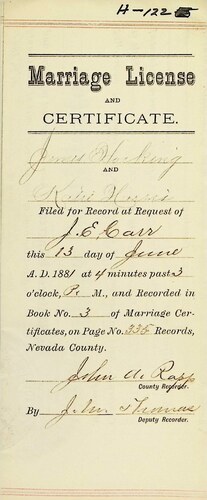 H-122
Marriage License
AND
CERTIFICATE.
James Hocking
AND
Filed for Record at Request of
J. E. Carr
this 13 day of June
A. D. 1881 at 4 minutes past 3
o'clock, P. M., and Recorded in
Book No. 3 of Marriage Cer-
tificates, on Page No. 335 Records,
Nevada County.
John A. Rapp
County Recorder.
By John Thomas
Deputy Recorder.